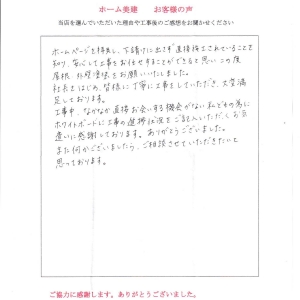 ホーム美建　お客様の声
当店を選んでいただいた理由や工事後のご感想をお聞かせください
ホームページを拝見し、下請けに出さず直接施工されていることを
知り、安心して工事をお任せすることができると思い、この度
屋根、外壁塗装をお願いいたしました。
社長をはじめ、皆様に丁寧に工事をしていただき、大変満
足しております。
工事中、なかなか直接お会いする機会がない私どもの為に
ホワイトボードに工事の進捗状況をご記入いただくお気
遣いに感謝しております。ありがとうございました。
また何かございましたら、ご相談させていただきたいと
思っております。
ご協力に感謝します。ありがとうございました。